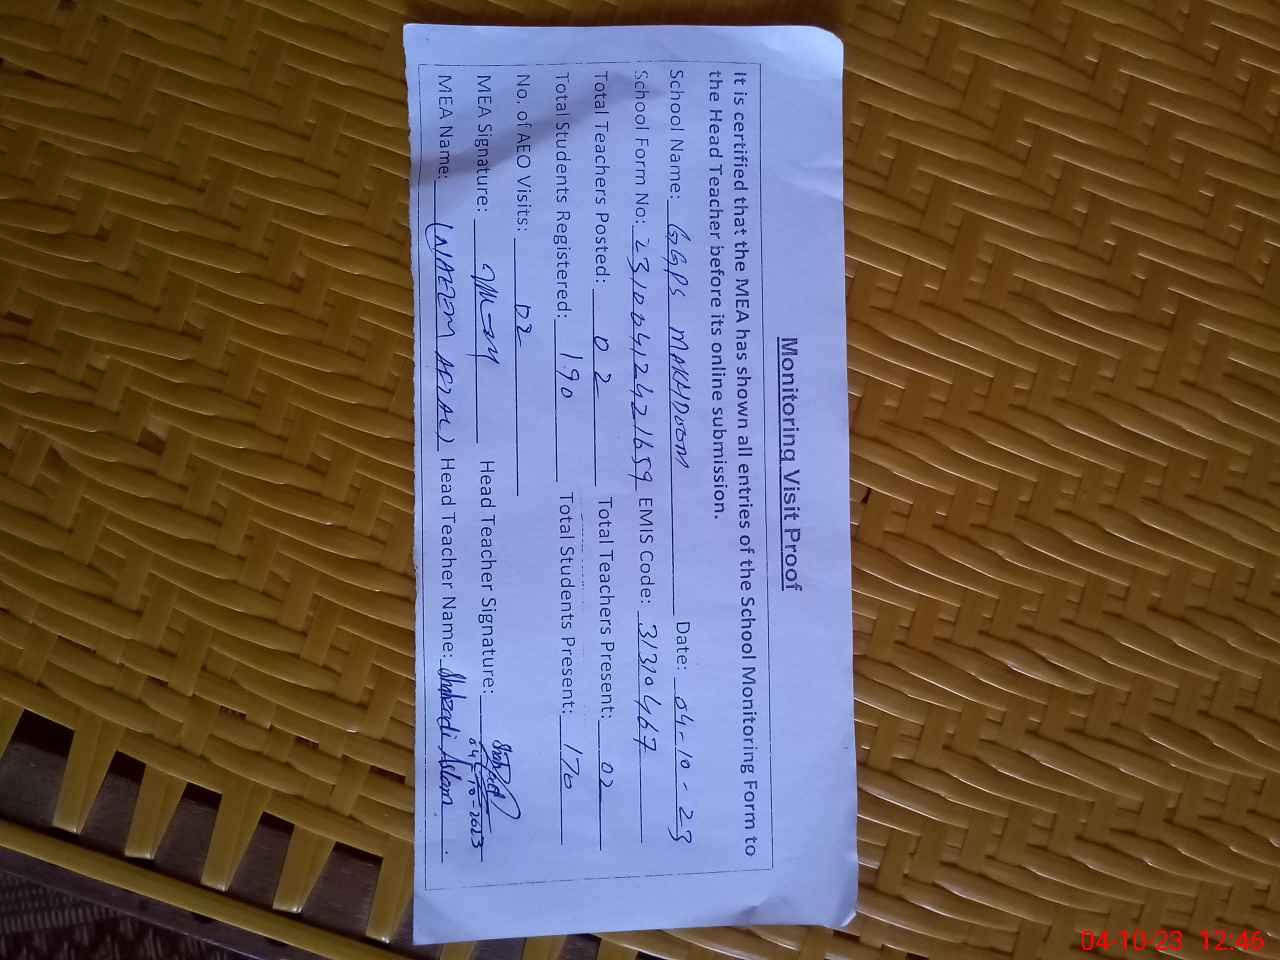 Monitoring Visit Proof
It is certified that the MEA has shown all entries of the School Monitoring Form to
the Head Teacher before its online submission.
School Name: GGPS MAKHDOOM Date: 04-10-23
School Form No: 23100412421659 EMIS Code: 31310467
Total Teachers Posted: 02 Total Teachers Present: 02
Total Students Registered: 190 Total Students Present: 170
No. of AEO Visits: 02
MEA Signature: Head Teacher Signature: 04-10-2023
MEA Name: (NAEEM AFZAL) Head Teacher Name: Shahzadi Aslam
04-10-23 12:46